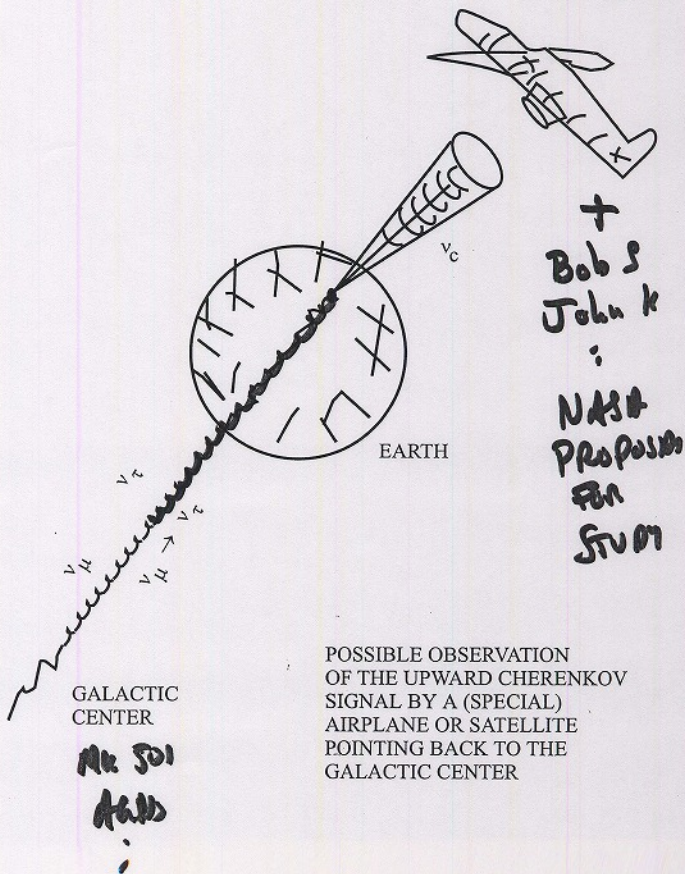 ν_c
+
Bob S
John K
:
NASA
PROPOSAL
FOR
STUDY
EARTH
ν_τ
ν_μ → ν_τ
ν_μ
GALACTIC
CENTER
Mk 501
AGNs
:
POSSIBLE OBSERVATION
OF THE UPWARD CHERENKOV
SIGNAL BY A (SPECIAL)
AIRPLANE OR SATELLITE
POINTING BACK TO THE
GALACTIC CENTER